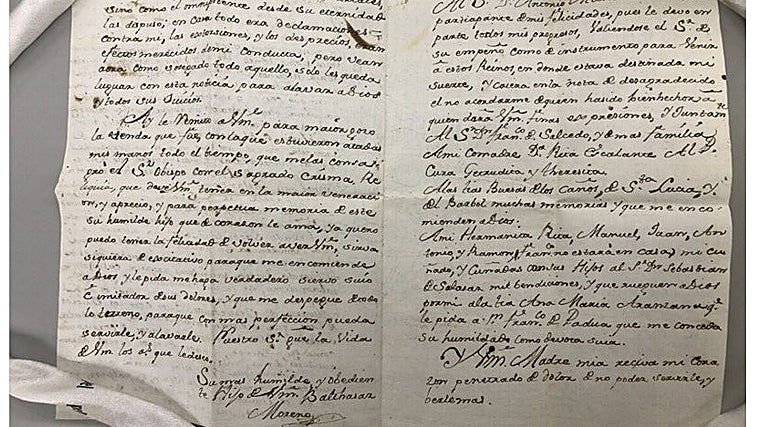 sino como el omnipotente desde su eternidad
las dispuso; en cara todo era declamaciones
contra mi, las estersiones, y los desprecios, eran
efectos merecidos de mi conducta, pero vean
aora como sosegado todo aquello, solo les queda
lugar con esta noticia para alavar a Dios
y todos sus Juicios.
Ay le remito a Vm. para maior gozo
la venda que fue, con la que estuvieron atadas
mis manos todo el tiempo, que me las consa
gró el Sr. Obispo con el sagrado Crisma, Re
liquia, que deve Vm. tener en la maior veneraci
on, y aprecio, y para perpetua memoria de este
su humilde hijo que de corazon le ama, ya que no
puedo tener la felicidad de volver a ver Vm., sirva
siquiera de executivo para que me encomiende
a Dios, y le pida me haga verdadero siervo suio
è imitador de sus Dolores, y que me despegue de todo
lo terreno, para que con mas perfeccion pueda
servirle, y alavarle. Nuestro Sr. gue. la Vida
de Vm. los as. que le deseo.
Su mas humilde y obedien
te Hijo de Vm. Balthasar
Moreno
Al P. D. Antonio
participante de mis felicidades, pues le devo en
parte todos mis progresos, valiendose el Sr. de
su empeño como de instrumento, para venir
a estos Reinos, en donde estava destinada mi
suerte, y caiera en la nota de desagradecido
el no acordarme de quien ha sido bienhechor a
quien dará Vm. finas expresiones, y juntam.te
Al Sr. Dn. Fran.co de Salcedo, y demas familia
A mi Comadre Da. Rita Al D.
Cura Getrudita y Theresita.
A las tias Buesas de los Caños, de S.ta Lucia, y
de Barbol muchas memorias y que me enco
mienden a Dios.
A mi Hermanica Rita, Manuel, Juan, An
tonio, y Ramon, Fran.co no estará en casa, mi cu
ñado, y Cuñadas con sus Hijos al Sr. Dn. Sebastian
de Salasar mil bendiciones, y que rueguen a Dios
por mi a la tia Ana Maria
le pida a Sn. Fran.co de Padua que me conceda
su humildad como devota suia.
Y Vm. Madre mia reciva mi Cora
zon penetrado de dolor de no poder servirle, y
verlemas.